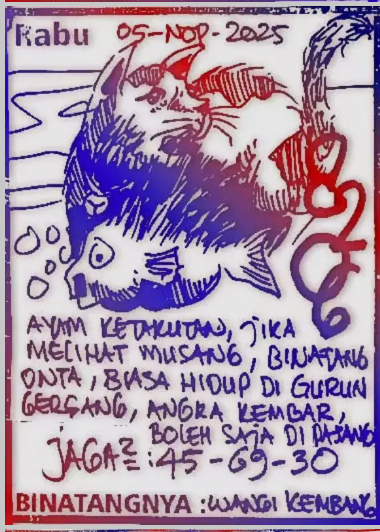 Rabu 05-NOP-2025
AYAM KETAKUTAN, JIKA
MELIHAT MUSANG, BINATANG
ONTA, BIASA HIDUP DI GURUN
GERSANG, ANGKA KEMBAR,
BOLEH SAJA DI PAJANG
JAGA2 : 45-69-30
BINATANGNYA : WANGI KEMBANG